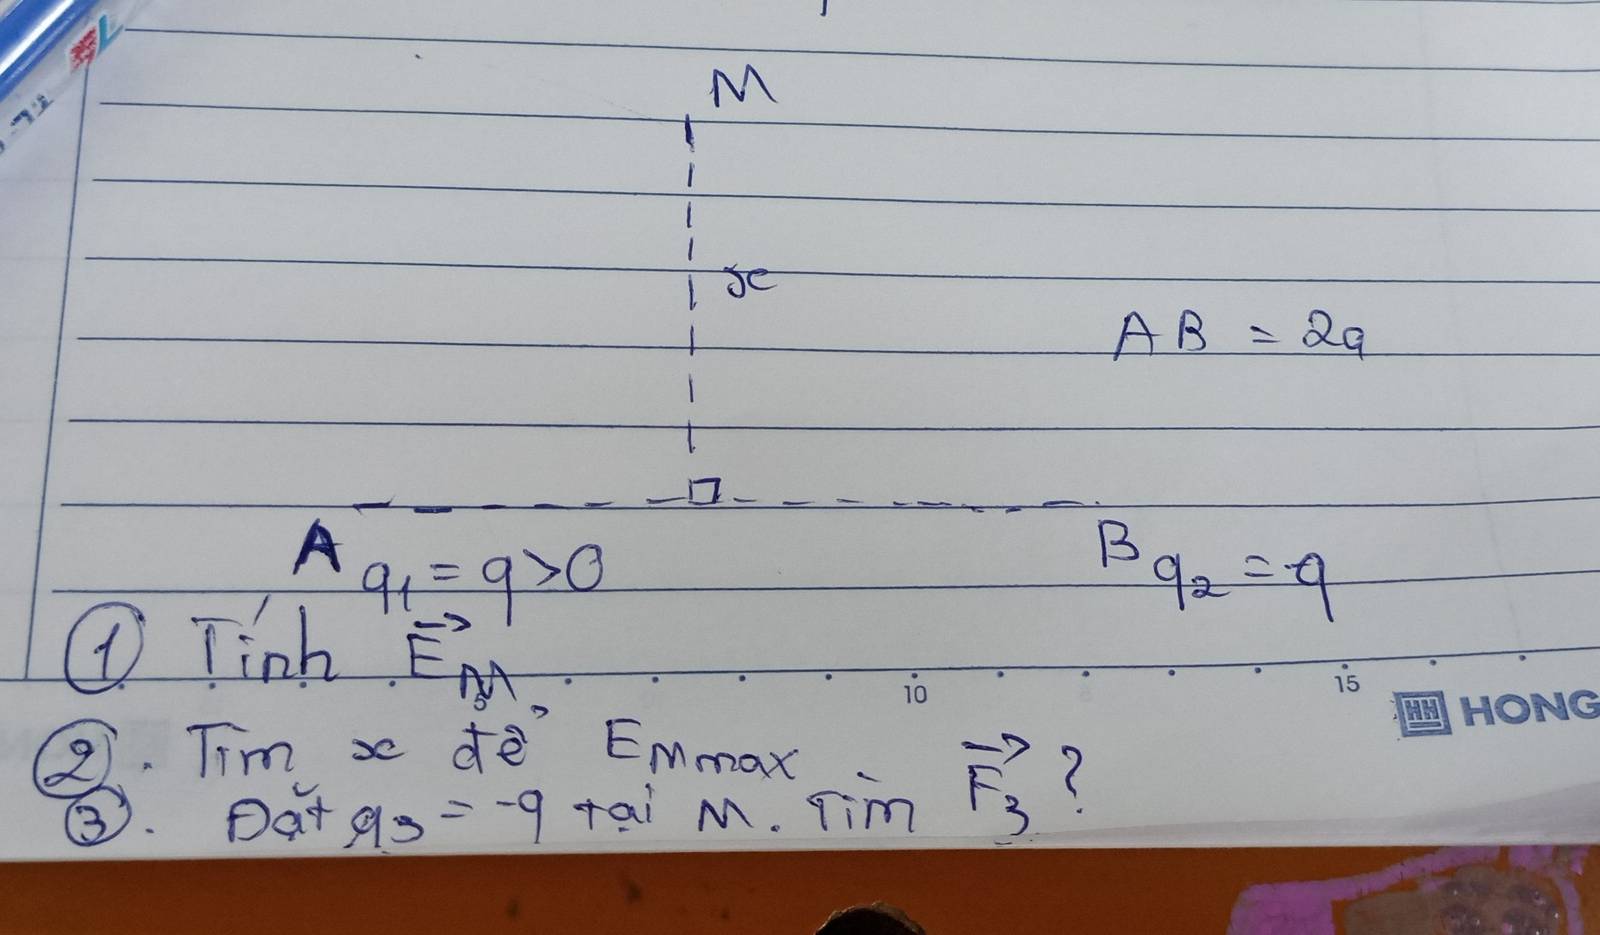 M
x
AB = 2a
A q₁ = q > 0
B q₂ = -q
① Tính E⃗_M
10
15
HONG
②. Tìm x để E_M max
③. Đặt q₃ = -q tại M. Tìm F⃗₃ ?